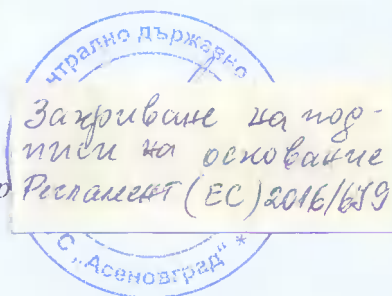 трално държавно
Закриване на под-
писи на основание
Регламент (ЕС) 2016/679
С "Асеновград" *